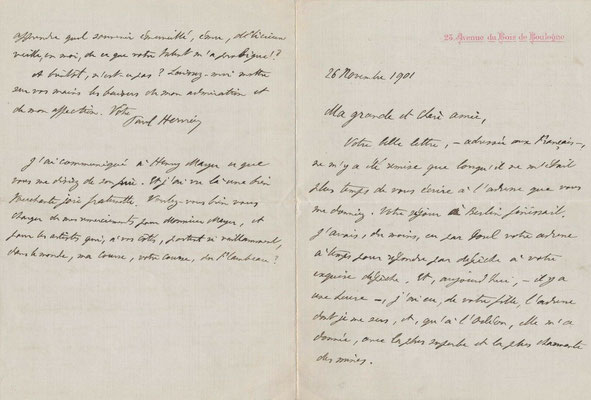 25 Avenue du Bois de Boulogne
26 Novembre 1901
Ma grande et chère amie,
Votre belle lettre, — adressée aux Français —,
ne m'y a été remise que lorsqu'il ne m'était
plus temps de vous écrire à l'adresse que vous
me donniez. Votre séjour à Berlin finissait.
J'avais, du moins, eu par Porel votre adresse
à temps pour répondre par dépêche à votre
exquise dépêche. Et, aujourd'hui, — il y a
une heure —, j'ai eu, de votre fille, l'adresse
dont je me sers, et, qu'à l'Odéon, elle m'a
donnée, avec la plus superbe et la plus charmante
des mines.
apprendre quel souvenir émerveillé, ému, délicieux
veille, en moi, de ce que votre talent m'a prodigué!?
À bientôt, n'est-ce pas? Laissez-moi mettre
sur vos mains les baisers de mon admiration et
de mon affection. Votre
Paul Hervieu
J'ai communiqué à Henry Mayer ce que
vous me disiez de son père. Et j'ai vu là une bien
touchante joie fraternelle. Voulez-vous bien vous
charger de mes remerciements pour Monsieur Mayer, et
pour les artistes qui, à vos côtés, portent si vaillamment,
dans le monde, ma course, votre course, du Flambeau?